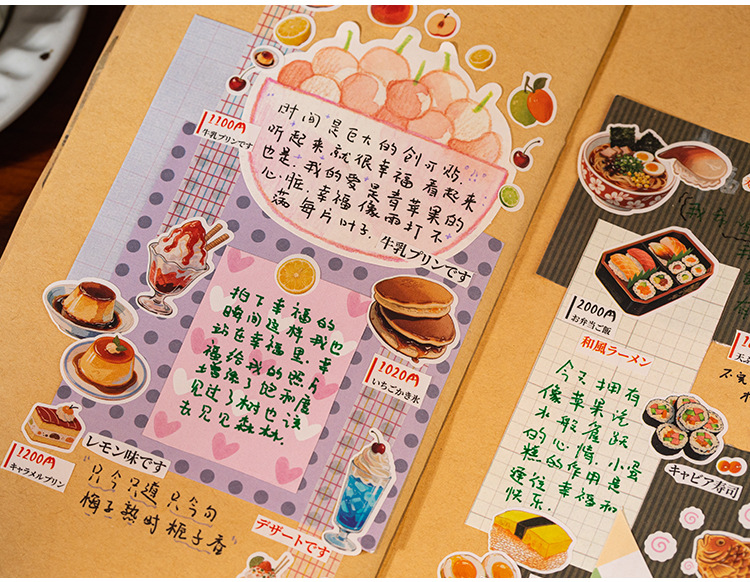 1100円
牛乳プリンです
时间是巨大的创可贴
听起来就很幸福 看起来
也是. 我的爱是青苹果的
心脏. 幸福像雨打不
落每片叶子.
牛乳プリンです
拍下幸福的
瞬间这样我也
站在幸福里. 幸
福给我的照片
增添了饱和度
见过了树也该
去见见森林.
1020円
いちごかき氷
1200円
キャラメルプリン
レモン味です
"只今只道只今句
梅子熟时栀子香"
デザートです
2000円
お弁当ご飯
和風ラーメン
今天拥有
像苹果汽
水般雀跃
的心情, 小蛋
糕的作用是
通往幸福和
快乐.
キャビア寿司